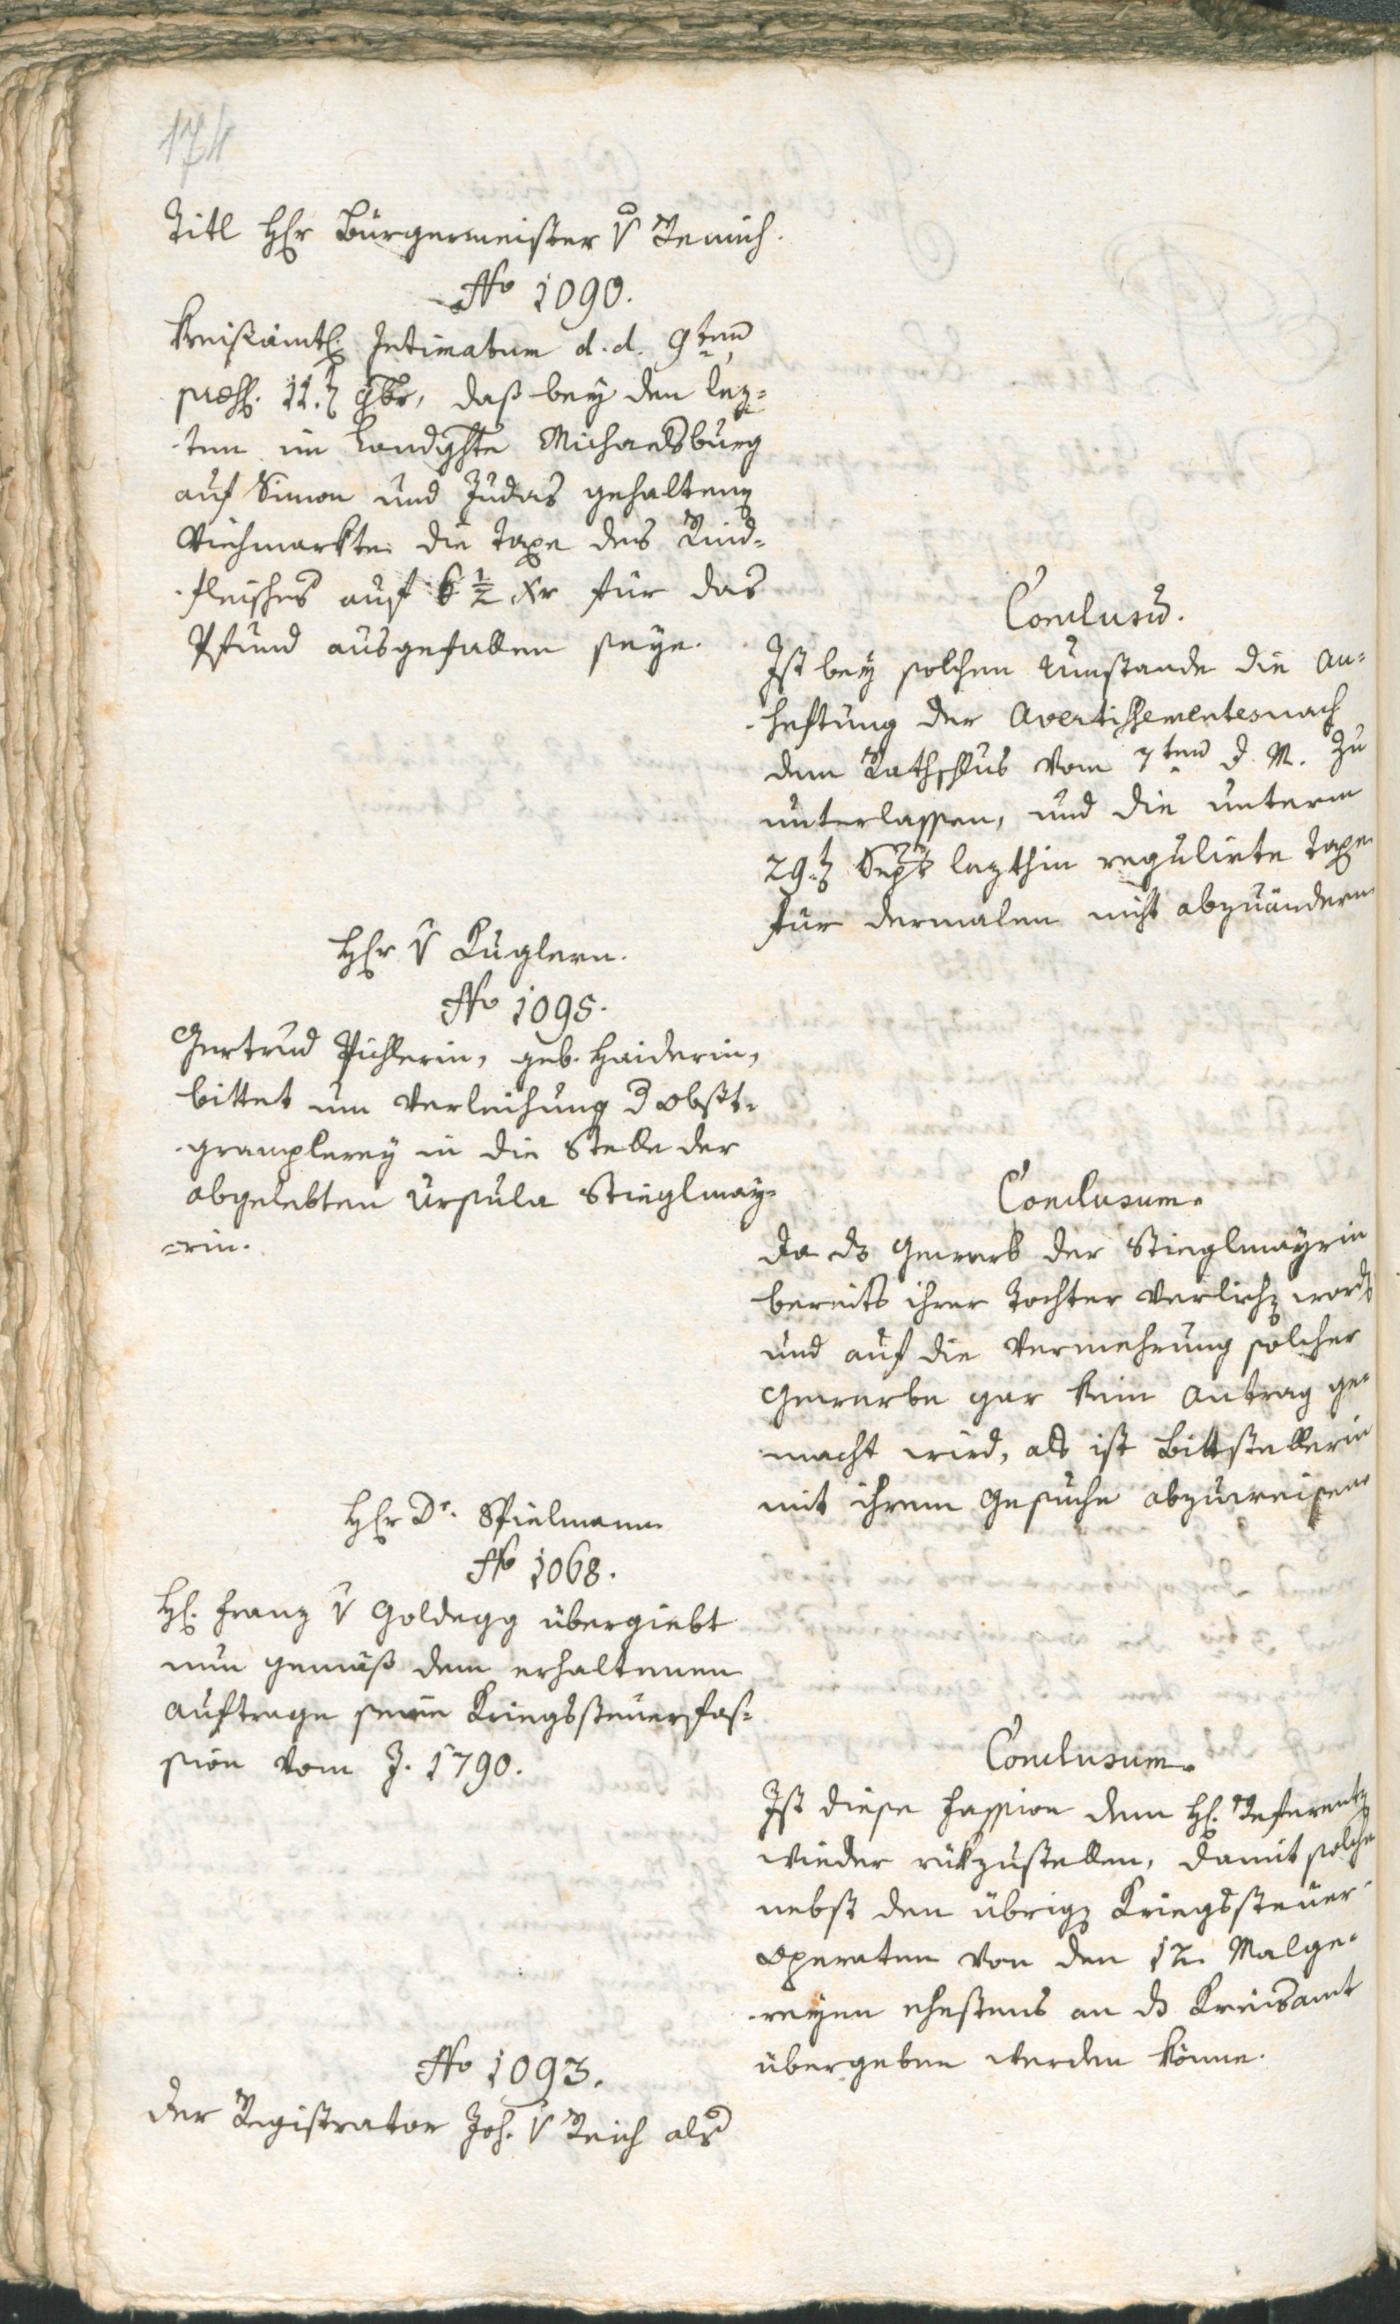 174
Titl HEr Bürgermeister v Remich.
No 1090.
Kreisämtl. Intimatum d. d. 9ten
præs. 11.t 9br, daß bey den lez=
ten im Landghte Michaelsburg
auf Simon und Judas gehaltenen
Viehmarkte die Taxe des Rind=
fleisches auf 6 1/2 Xr für das
Pfund ausgefallen seye.
Conclusū.
Ist bey solchen Umstande die An=
heftung der Avertissementes nach
dem Rathschlus vom 7ten d. M. zu
unterlassen, und die unterm
29.t Sept lezthin regulirte Taxe
für dermalen nicht abzuändern
HEr v Kuglern.
No 1095.
Gertrud Pichlerin, geb. Haiderin,
bittet um Verleihung d Obst=
gramplerey in die Stelle der
abgelebten Ursula Stieglmay=
=rin.
Conclusum.
Da ds Gewerb der Stieglmayrin
bereits ihrer Tochter verliehen worden
und auf die Vermehrung solcher
Gewerbe gar kein Antrag ge=
macht wird, als ist Bittstellerin
mit ihrem Gesuche abzuweisen
HEr Dr. Spielmann
No 1068.
H. Franz v Goldegg übergiebt
nun gemäß dem erhaltenen
Auftrage seine Kriegssteuerfas=
sion vom J. 1790.
Conclusum.
Ist diese Fassion dem H. Referenten
wieder rükzustellen, damit solche
nebst den übrigen Kriegssteuer=
Operaten von den 12. Malge=
reyen ehestens an ds Kreisamt
übergeben werden könne.
No 1093.
Der Registrator Joh. v Reich als